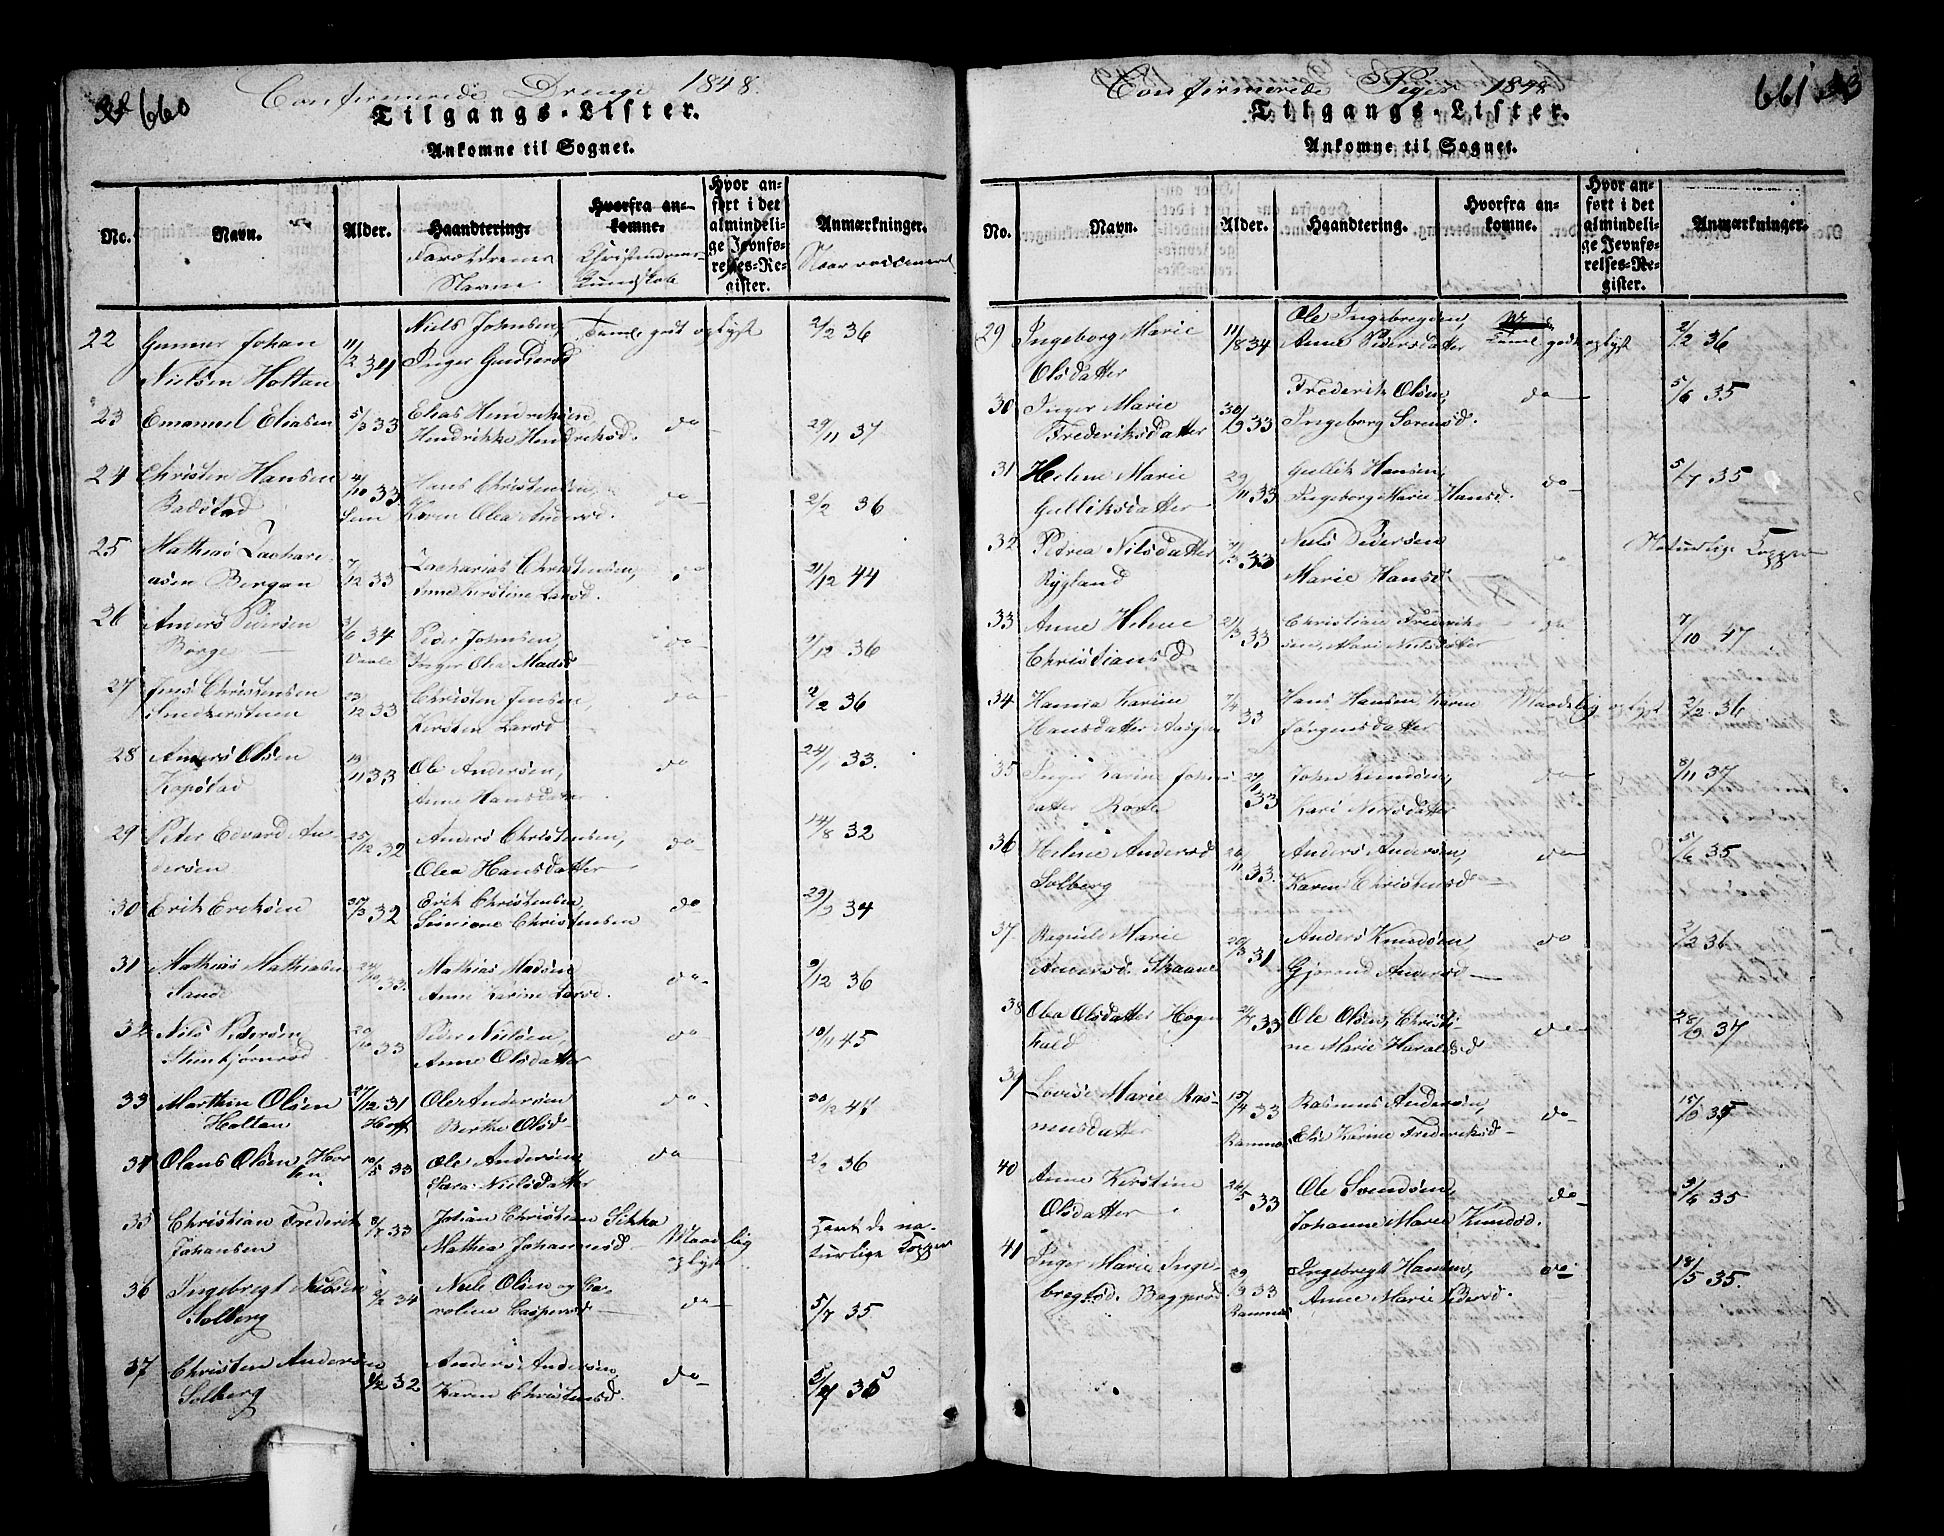 660
Confirmerede Drenge 1848.
Tilgangs-Lister.
Ankomne til Sognet.
No.
Navn.
Alder.
Haandtering.
Forældrenes Navne
Hvorfra ankomne.
Christendoms Kundskab
Hvor anført i det almindelige Jevnførelses-Register.
Anmærkninger.
Naar vaccineret
22 Gunnar Johan 11/2 34 Niels Johnsen, Temmel. godt oplyst 2/2 36
Nielsen Holtan Inger Gundersd
23 Emanuel Eliasen 5/3 33 Elias Hendriksen, do 29/11 37
Hendrikke Hendriksd.
24 Christen Hansen 4/10 33 Hans Christensen, do 2/2 36
Sem Karen Olea Andersd.
25 Mathias Zachari-
asen Bergan 7/12 33 Zacharias Christensen, do 21/12 44
Anne Kirstine Larsd.
26 Anders Pedersen 3/6 34 Peder Johnsen, do 2/12 36
Borge Vaale Inger Olea Madsd
27 Jens Christensen 23/12 33 Christen Jensen, do 2/2 36
Kirsten Larsd
28 Anders Olsen 13/11 33 Ole Andersen, do 24/1 33.
Kopstad Anne Hansdatter
29 Peter Edvard An- 25/12 32 Anders Christensen, do 14/8 32
dersen Olea Hansdatter
30 Erik Eriksen 32 Erik Christensen, do 34
Christensen
31 Mathias Mathiasen 24/10 33. Mathias Madsen do 9/12 36
Sande Anne Karine Larsd.
32 Nils Pedersen 20/10 33 Peder Nielsen, do 10/11 45
Anne Olsdatter
33 Marthin Olsen 27/12 31 Ole Andersen do
Holtan Hoff Berthe Olsd
34 Olaus Olsen Hor- 10/5 33 Ole Andersen, do 2/2 36
ten Sara Nielsdatter
35 Christian Frederik 8/7 33 Johan Christian Sikka Maadelig Havt de na-
Johansen Mathea Johannesd. oplyst turlige Kopper
36 Ingebregt Nielsen 2/2 34 Niels Olsen og Ca- do 5/7 35
Solberg roline Caspersd
37 Christen Andersen 1/2 32 Anders Andersen, do 5/7 35
Solberg Karen Christensd.
661
Confirmerede Piger 1848
Tilgangs-Lister.
Ankomne til Sognet.
No.
Navn.
Alder.
Haandtering.
Hvorfra ankomne.
Hvor anført i det almindelige Jevnførelses-Register.
Anmærkninger.
29 Ingeborg Marie 11/8 34 Ole Ingebregtsen, Temmel. godt oplyst 2/2 36
Olsdatter Anne Pedersdatter
30 Inger Marie 30/9 33 Frederik Olsen, do 5/6 35
Frederiksdatter Ingeborg Sorensd.
31 Helene Marie 29/11 33 Gullik Hansen, do 5/7 35
Gulliksdatter Ingeborg Marie Hansd.
32 Petrea Nilsdatter 7/3 33 Niels Pedersen do Naturlige Kopper
Rygland Marie Hansd
33 Anne Helene 21/3 33 Christian Frederik- do 7/10 47
Christiansd sen, Mari Nielsdatter
34 Hanna Karine 7/4 33 Hans Hansen, Karen Maadelig oplyst 2/2 36
Hansdatter Jörgensdatter
35 Inger Karine Johns- 33 John Knudsen, do 8/11 37
datter Kari Nielsdatter
36 Helene Andersd 26/11 33. Anders Andersen, do 5/6 35
Solberg Karen Christensd
37. Ragnild Marie 20/3 31 Anders Knudsen, do 2/2 36
Andersd. Skaane Gjorand Andersd
38 Olea Olsdatter Hogn 33 Ole Olsen, Christi- do 28/9 37
hald ne Marie Haraldsd
39 Lovise Marie Ras- 15/4 33 Rasmus Andersen, do 15/9 35
musdatter Ramnes Else Karine Frederiksd
40 Anne Kirstine 26/5 33 Ole Svendsen, do 5/6 35
Olsdatter Johanne Marie Knudsd.
41 Inger Marie Inge- 29/9 33 Ingebregt Hansen, do 18/5 35
bregtsd. Ramnes Anne Marie Pedersd.